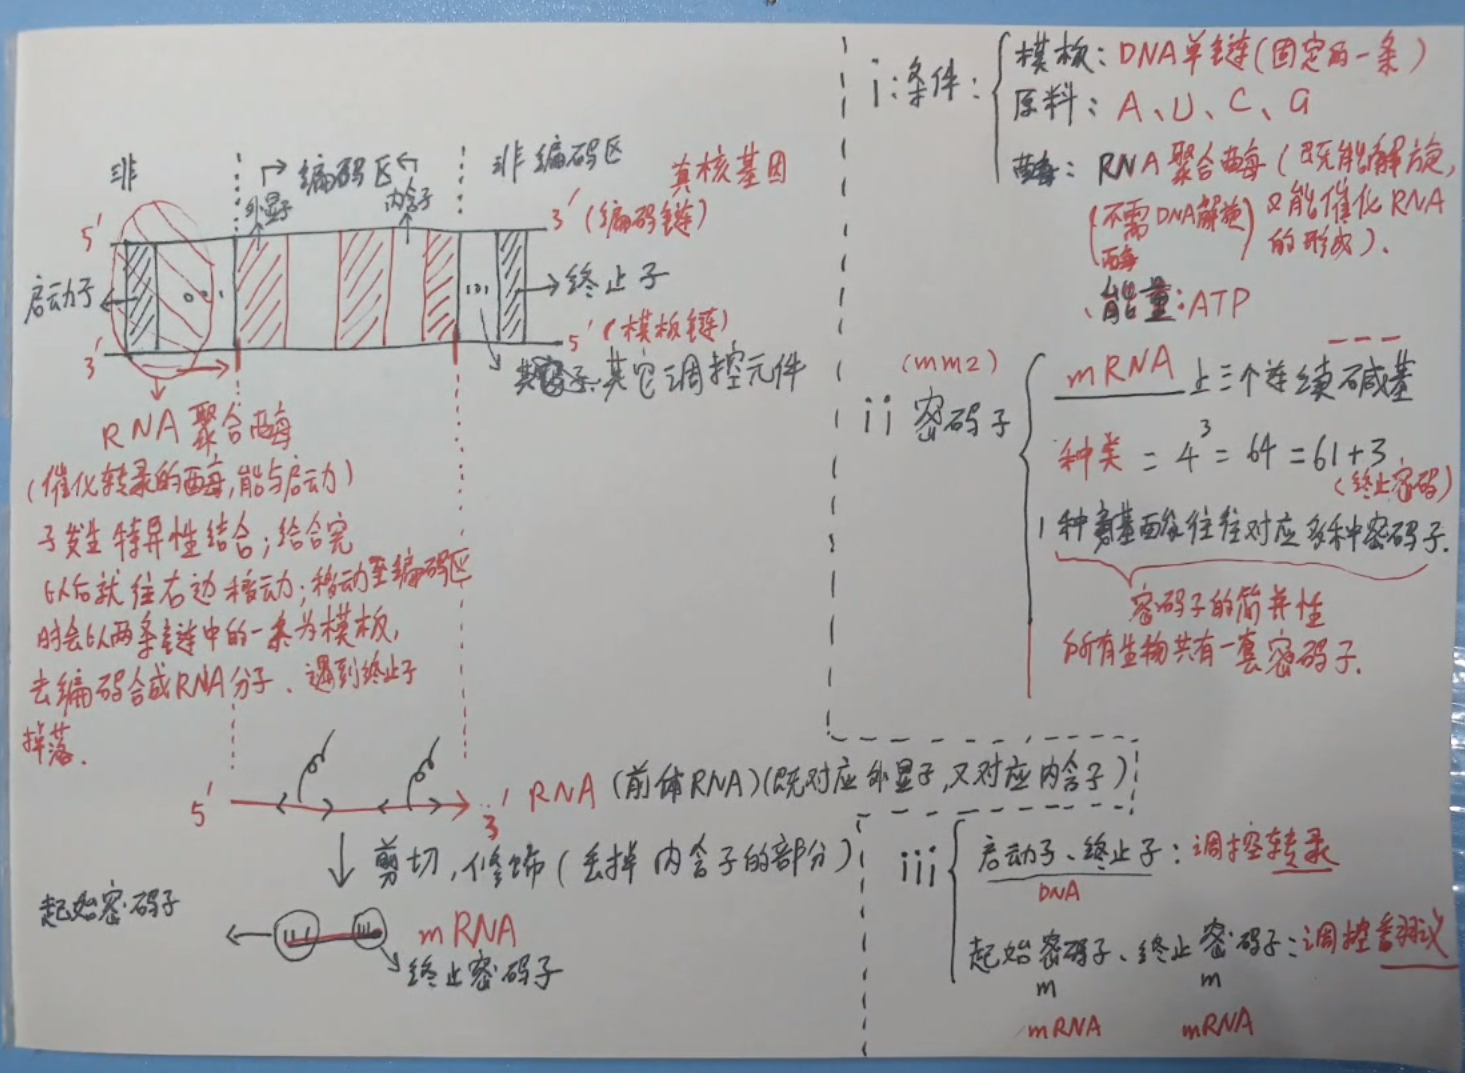 非
编码区
非编码区
真核基因
外显子
内含子
5′
3′（编码链）
启动子
终止子
3′
5′（模板链）
其它调控元件
RNA聚合酶
（催化转录的酶,能与启动）
子发生特异性结合；结合完
以后就往右边移动；移动至编码区
时会以两条链中的一条为模板,
去编码合成RNA分子、遇到终止子
掉落.
5′
3′
RNA（前体RNA）(既对应外显子,又对应内含子)
剪切,修饰（丢掉内含子的部分）
起始密码子
mRNA
终止密码子
i:条件:
模板: DNA单链(固定的一条)
原料: A、U、C、G
酶: RNA聚合酶(既能解旋,
(不需DNA解旋酶)
又能催化RNA的形成).
能量:ATP
ii 密码子
mRNA上三个连续碱基
种类 = 4³ = 64 = 61+3
(终止密码)
1种氨基酸往往对应多种密码子.
密码子的简并性
所有生物共有一套密码子.
iii
启动子、终止子:调控转录
DNA
起始密码子、终止密码子:调控翻译
m
m
mRNA
mRNA